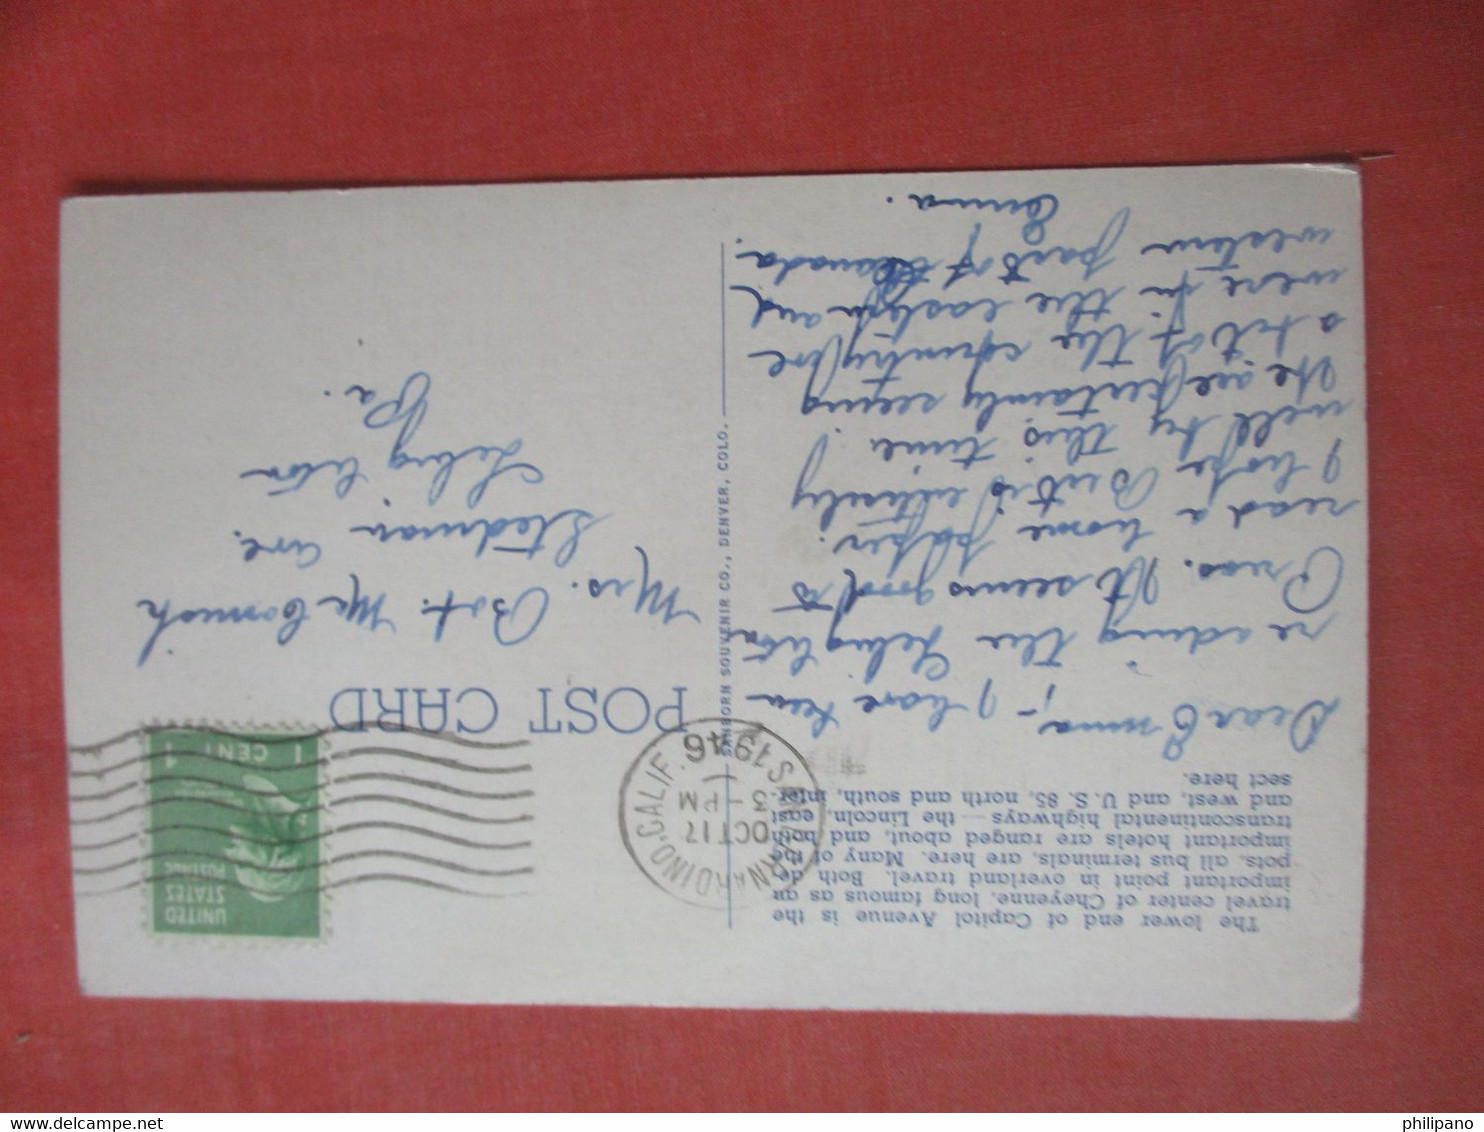 The lower end of Capitol Avenue is the
travel center of Cheyenne, long famous as an
important point in overland travel. Both de-
pots, all bus terminals, are here. Many of the
important hotels are ranged about, and both
transcontinental highways — the Lincoln, east
and west, and U. S. 85, north and south, inter-
sect here.
Dear Emma;- I have been
reading the
Press. It seems good to
read a home paper.
I hope Bert is entirely
well by this time.
We are certainly seeing
a lot of the country. We
were in the eastern and
western parts of Canada.
Emma.
SANBORN SOUVENIR CO., DENVER, COLO.
POST CARD
SAN BERNARDINO, CALIF.
OCT 17
3 - PM
1946
UNITED
STATES
POSTAGE
1 CENT 1
Mrs. Bert. McCornish
Stedman ave.
Pa.
philipano